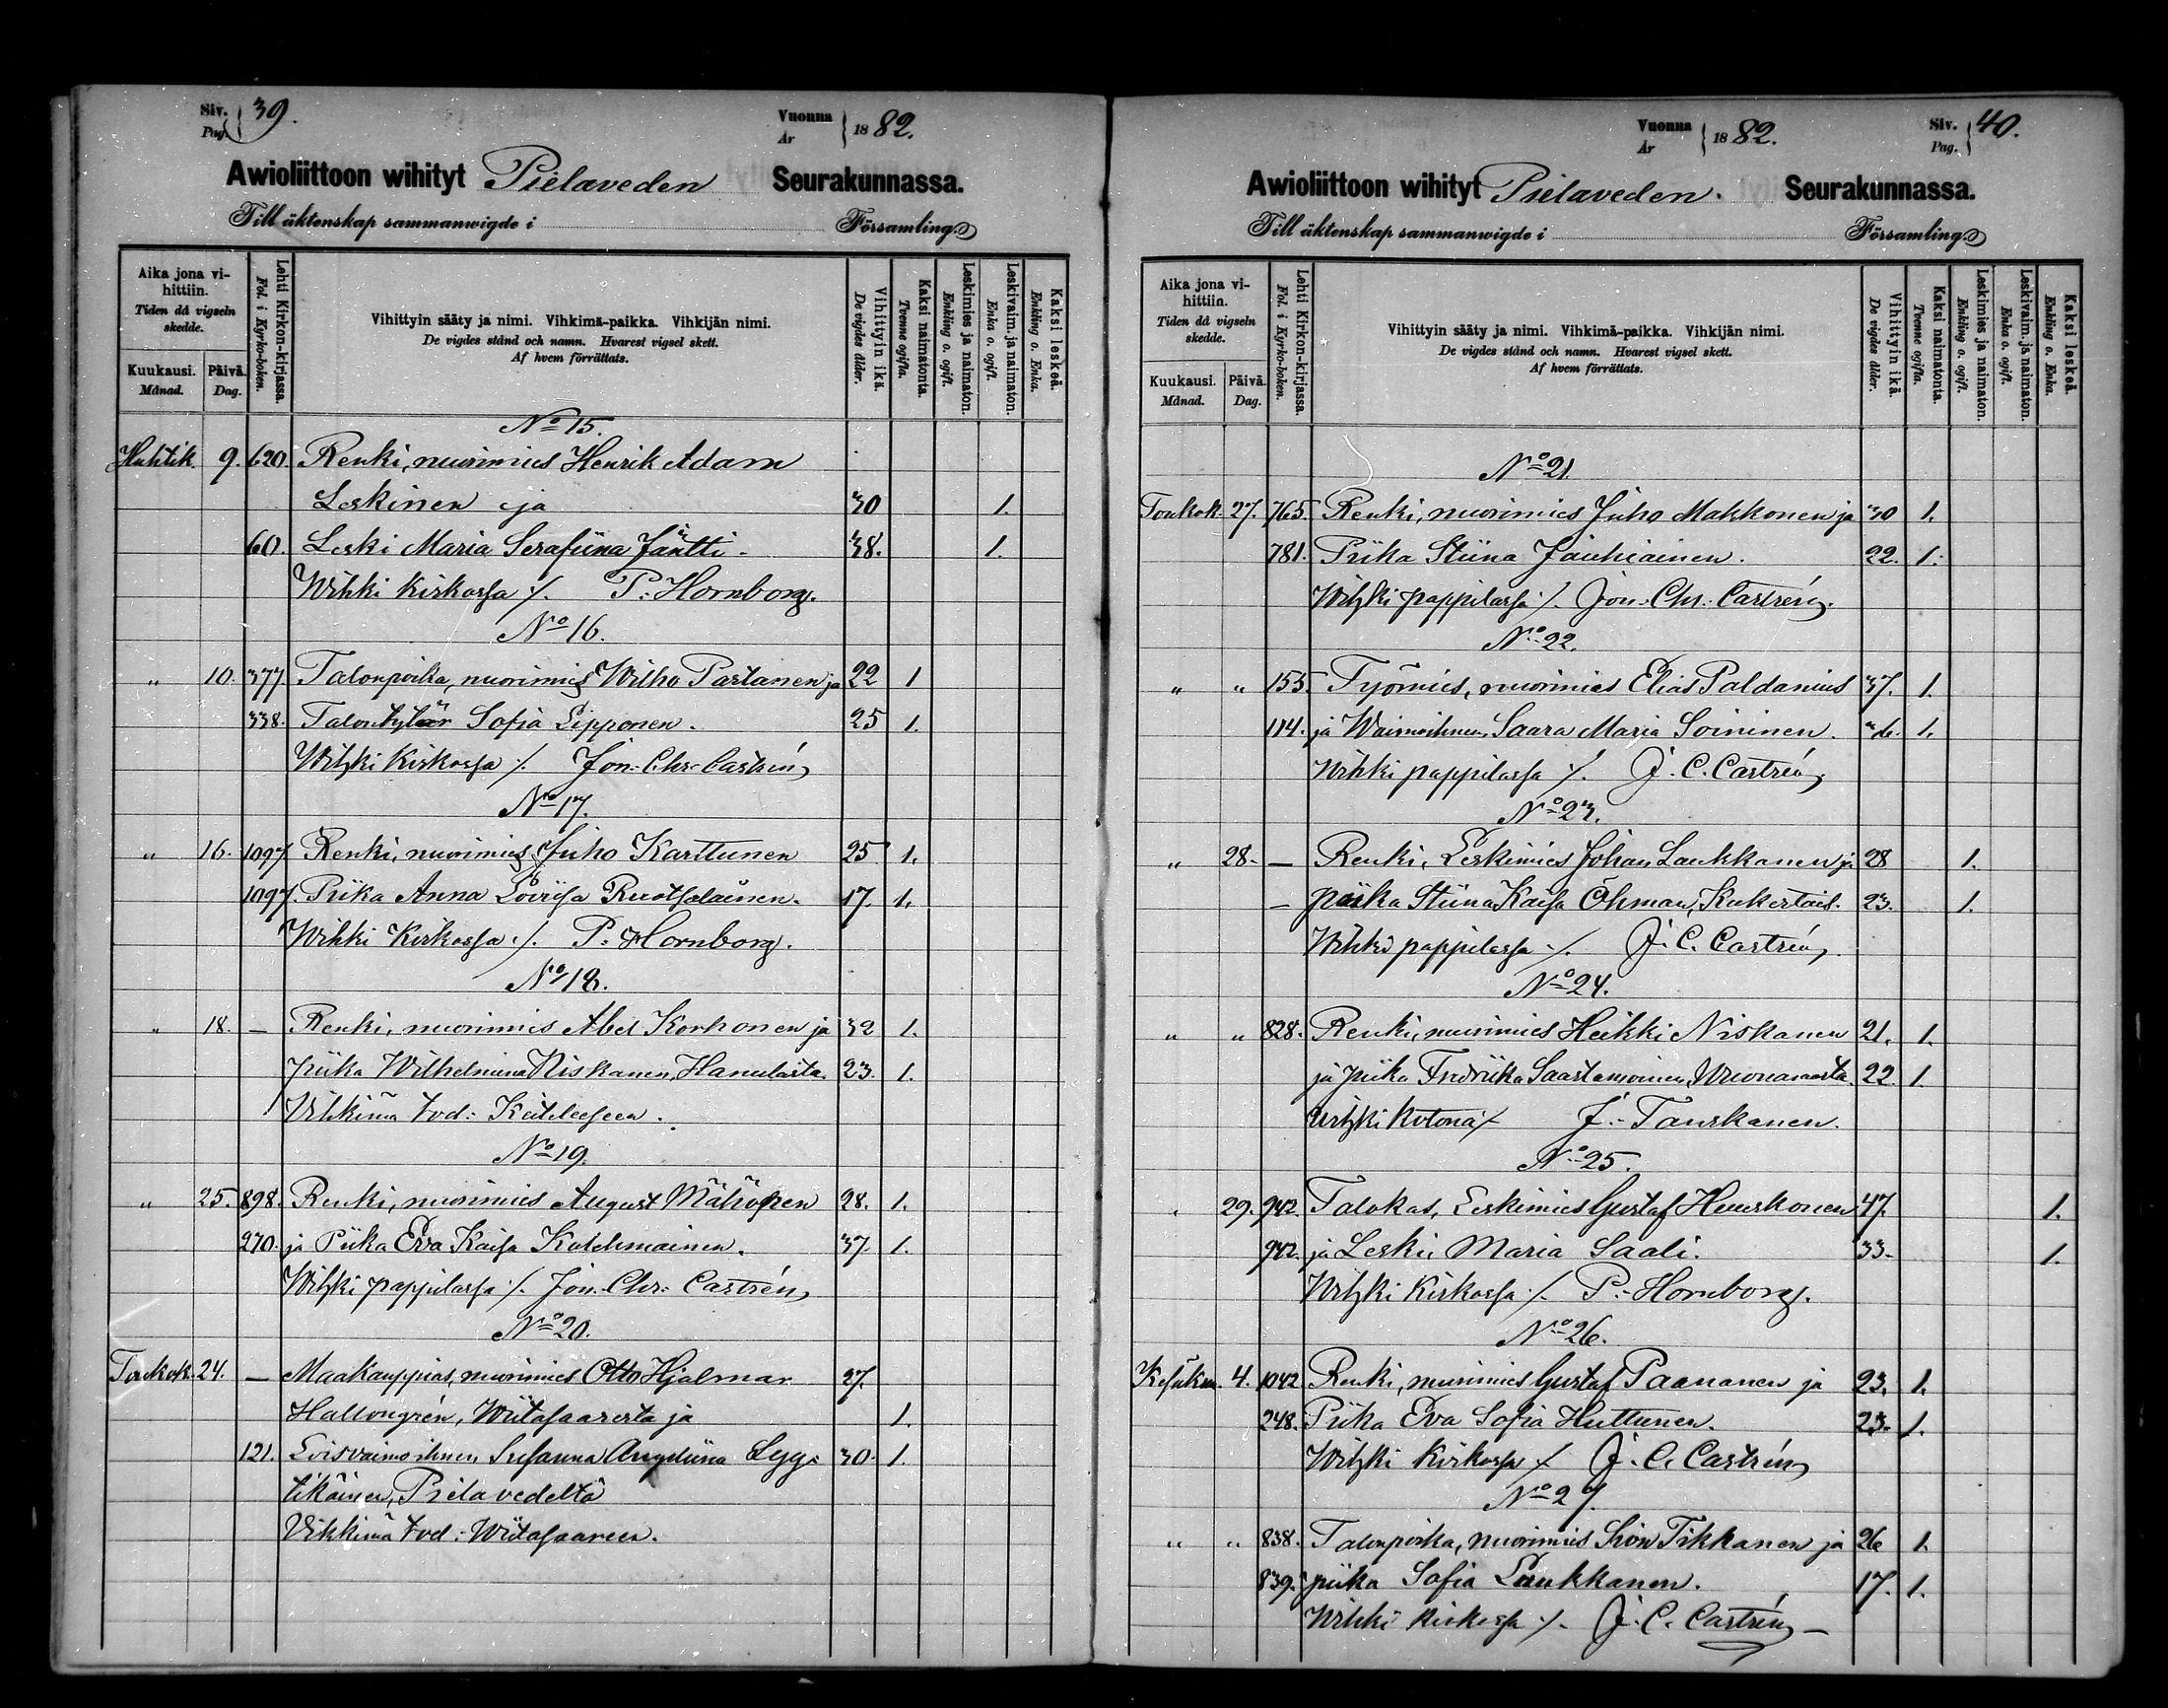 Siv. Pag. 39.
Vuonna År 1882.
Awioliittoon wihityt Pielaveden Seurakunnassa.
Till äktenskap sammanwigde i Församling.
Aika jona vihittiin. Tiden då vigseln skedde.
Kuukausi. Månad.
Päivä. Dag.
Lehti Kirkon-kirjassa. Fol. i Kyrko-boken.
Vihittyin sääty ja nimi. Vihkimä-paikka. Vihkijän nimi.
De vigdes stånd och namn. Hvarest vigsel skett.
Af hvem förrättats.
Vihittyin ikä. De vigdes ålder.
Kaksi naimatonta. Tvenne ogifta.
Leskimies ja naimaton. Enkling o. ogift.
Leskivaim. ja naimaton. Enka o. ogift.
Kaksi leskeä. Enkling o. Enka.
No 15.
Huhtik. 9. 620. Renki, nuorimies Henrik Adam
Leskinen ja 30 1.
60. Leski Maria Serafiina Jäntti. 38. 1.
Wihki Kirkossa ./. P. Hornborg.
No 16.
" 10. 377. Talonpoika, nuorimies Wilho Partanen ja 22 1
338. Talontytär Sofia Lipponen. 25 1.
Wihki Kirkossa ./. Jon. Chr. Castrén
No 17.
" 16. 1097. Renki, nuorimies Juho Karttunen 25 1.
1097. Piika Anna Loviisa Ruotsalainen. 17. 1.
Wihki Kirkossa ./. P. Hornborg.
No 18.
" 18. — Renki, nuorimies Abel Korhonen ja 32 1.
piika Wilhelmiina Niskanen, Hanulasta. 23. 1.
Vihkimä tod: Keiteleeseen.
No 19.
" 25. 898. Renki, nuorimies August Mähönen 28. 1.
270. ja Piika Eva Kaisa Kutchmainen. 37. 1.
Wihki pappilassa ./. Jon. Chr. Castrén
No 20.
Toukok. 24. — Maakauppias, nuorimies Otto Hjalmar 27.
Hallongrén, Wiitasaaresta ja 1.
121. Loisvaimoihmen Susanna 30. 1.
Pielavedeltä
Vihkimä tod: Wiitasaareen.
Vuonna År 1882.
Siv. Pag. 40.
Awioliittoon wihityt Pielaveden. Seurakunnassa.
Till äktenskap sammanwigde i Församling.
Aika jona vihittiin. Tiden då vigseln skedde.
Kuukausi. Månad.
Päivä. Dag.
Lehti Kirkon-kirjassa. Fol. i Kyrko-boken.
Vihittyin sääty ja nimi. Vihkimä-paikka. Vihkijän nimi.
De vigdes stånd och namn. Hvarest vigsel skett.
Af hvem förrättats.
Vihittyin ikä. De vigdes ålder.
Kaksi naimatonta. Tvenne ogifta.
Leskimies ja naimaton. Enkling o. ogift.
Leskivaim. ja naimaton. Enka o. ogift.
Kaksi leskeä. Enkling o. Enka.
No 21.
Toukok. 27. 765. Renki, nuorimies Juho Makkonen ja 30 1.
781. Piika Stiina Jauhiainen. 22. 1.
Wihki pappilassa ./. Jon. Chr. Castrén.
No 22.
" " 155. Työmies, nuorimies Elias Paldanius 37. 1.
114. ja Waimoihmen Saara Maria Soininen. 1.
Wihki pappilassa ./. J. C. Castrén
No 23.
" 28. — Renki, Leskimies Johan Laukkanen ja 28 1.
— piika Stiina Kaisa Öhman, 23. 1.
Wihki pappilassa ./. J. C. Castrén
No 24.
" " 828. Renki, nuorimies Heikki Niskanen 21. 1.
ja piika Fredriika Saastamoinen 22. 1.
Wihki Kotona ./. J. Tanskanen.
No 25.
" 29. 942. Talokas, Leskimies Gustaf Huuskonen 47. 1.
942. ja Leski Maria Saali. 33. 1.
Wihki Kirkossa ./. P. Hornborg.
No 26.
Kesäkuu. 4. 1042 Renki, nuorimies Gustaf Paananen ja 23. 1.
248. Piika Eva Sofia Huttunen. 23. 1.
Wihki Kirkossa ./. J. C. Castrén
No 27.
" " 838. Talonpoika, nuorimies Tikkanen ja 26 1.
839. piika Sofia Laukkanen. 17. 1.
Wihki Kirkossa ./. J. C. Castrén